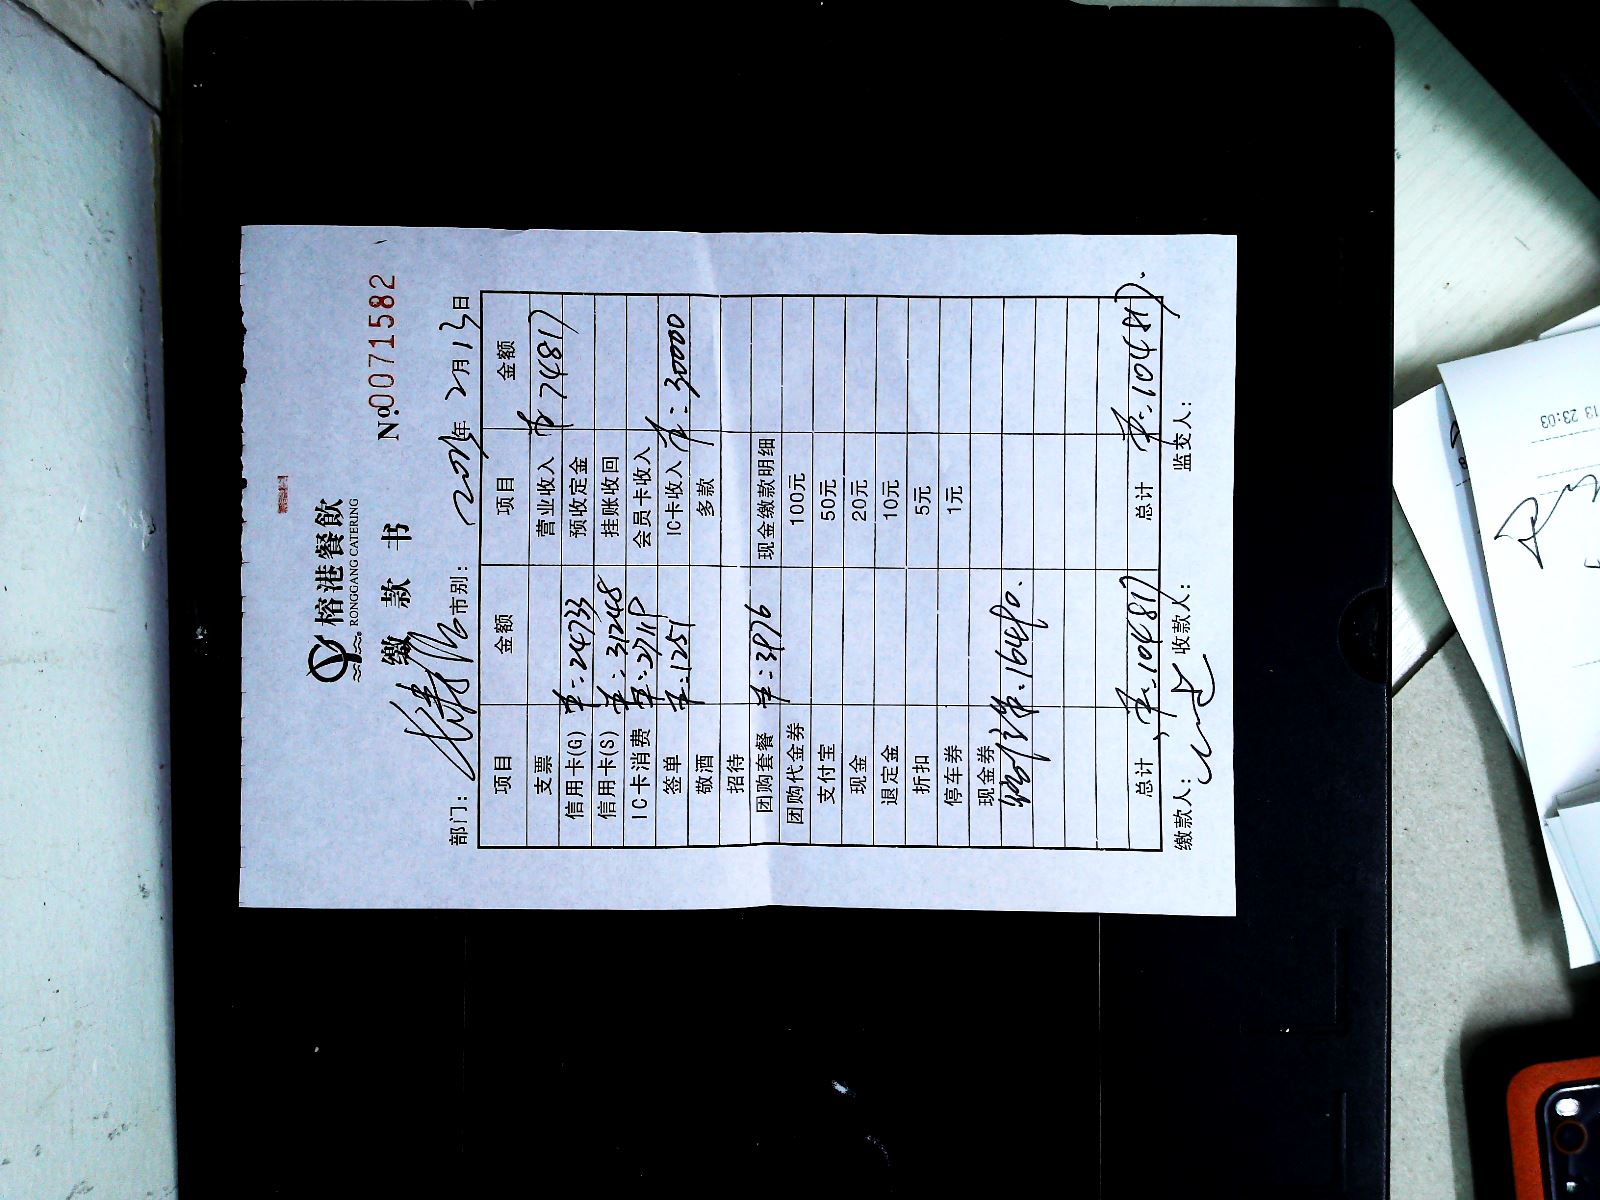 榕港餐飲
RONGGANG CATERING
缴 款 书
№0071582
部门： 市别： 年 2月13日
项目 金额 项目 金额
支票 营业收入 74817
信用卡(G) 24733 预收定金
信用卡(S) 31248 挂账收回
IC卡消费 会员卡收入
签单 1251 IC卡收入 30000
敬酒 多款
招待
团购套餐 3876 现金缴款明细
团购代金券 100元
支付宝 50元
现金 20元
退定金 10元
折扣 5元
停车券 1元
现金券
总计 104817 总计 104817
缴款人： 收款人： 监交人：
13 23:03